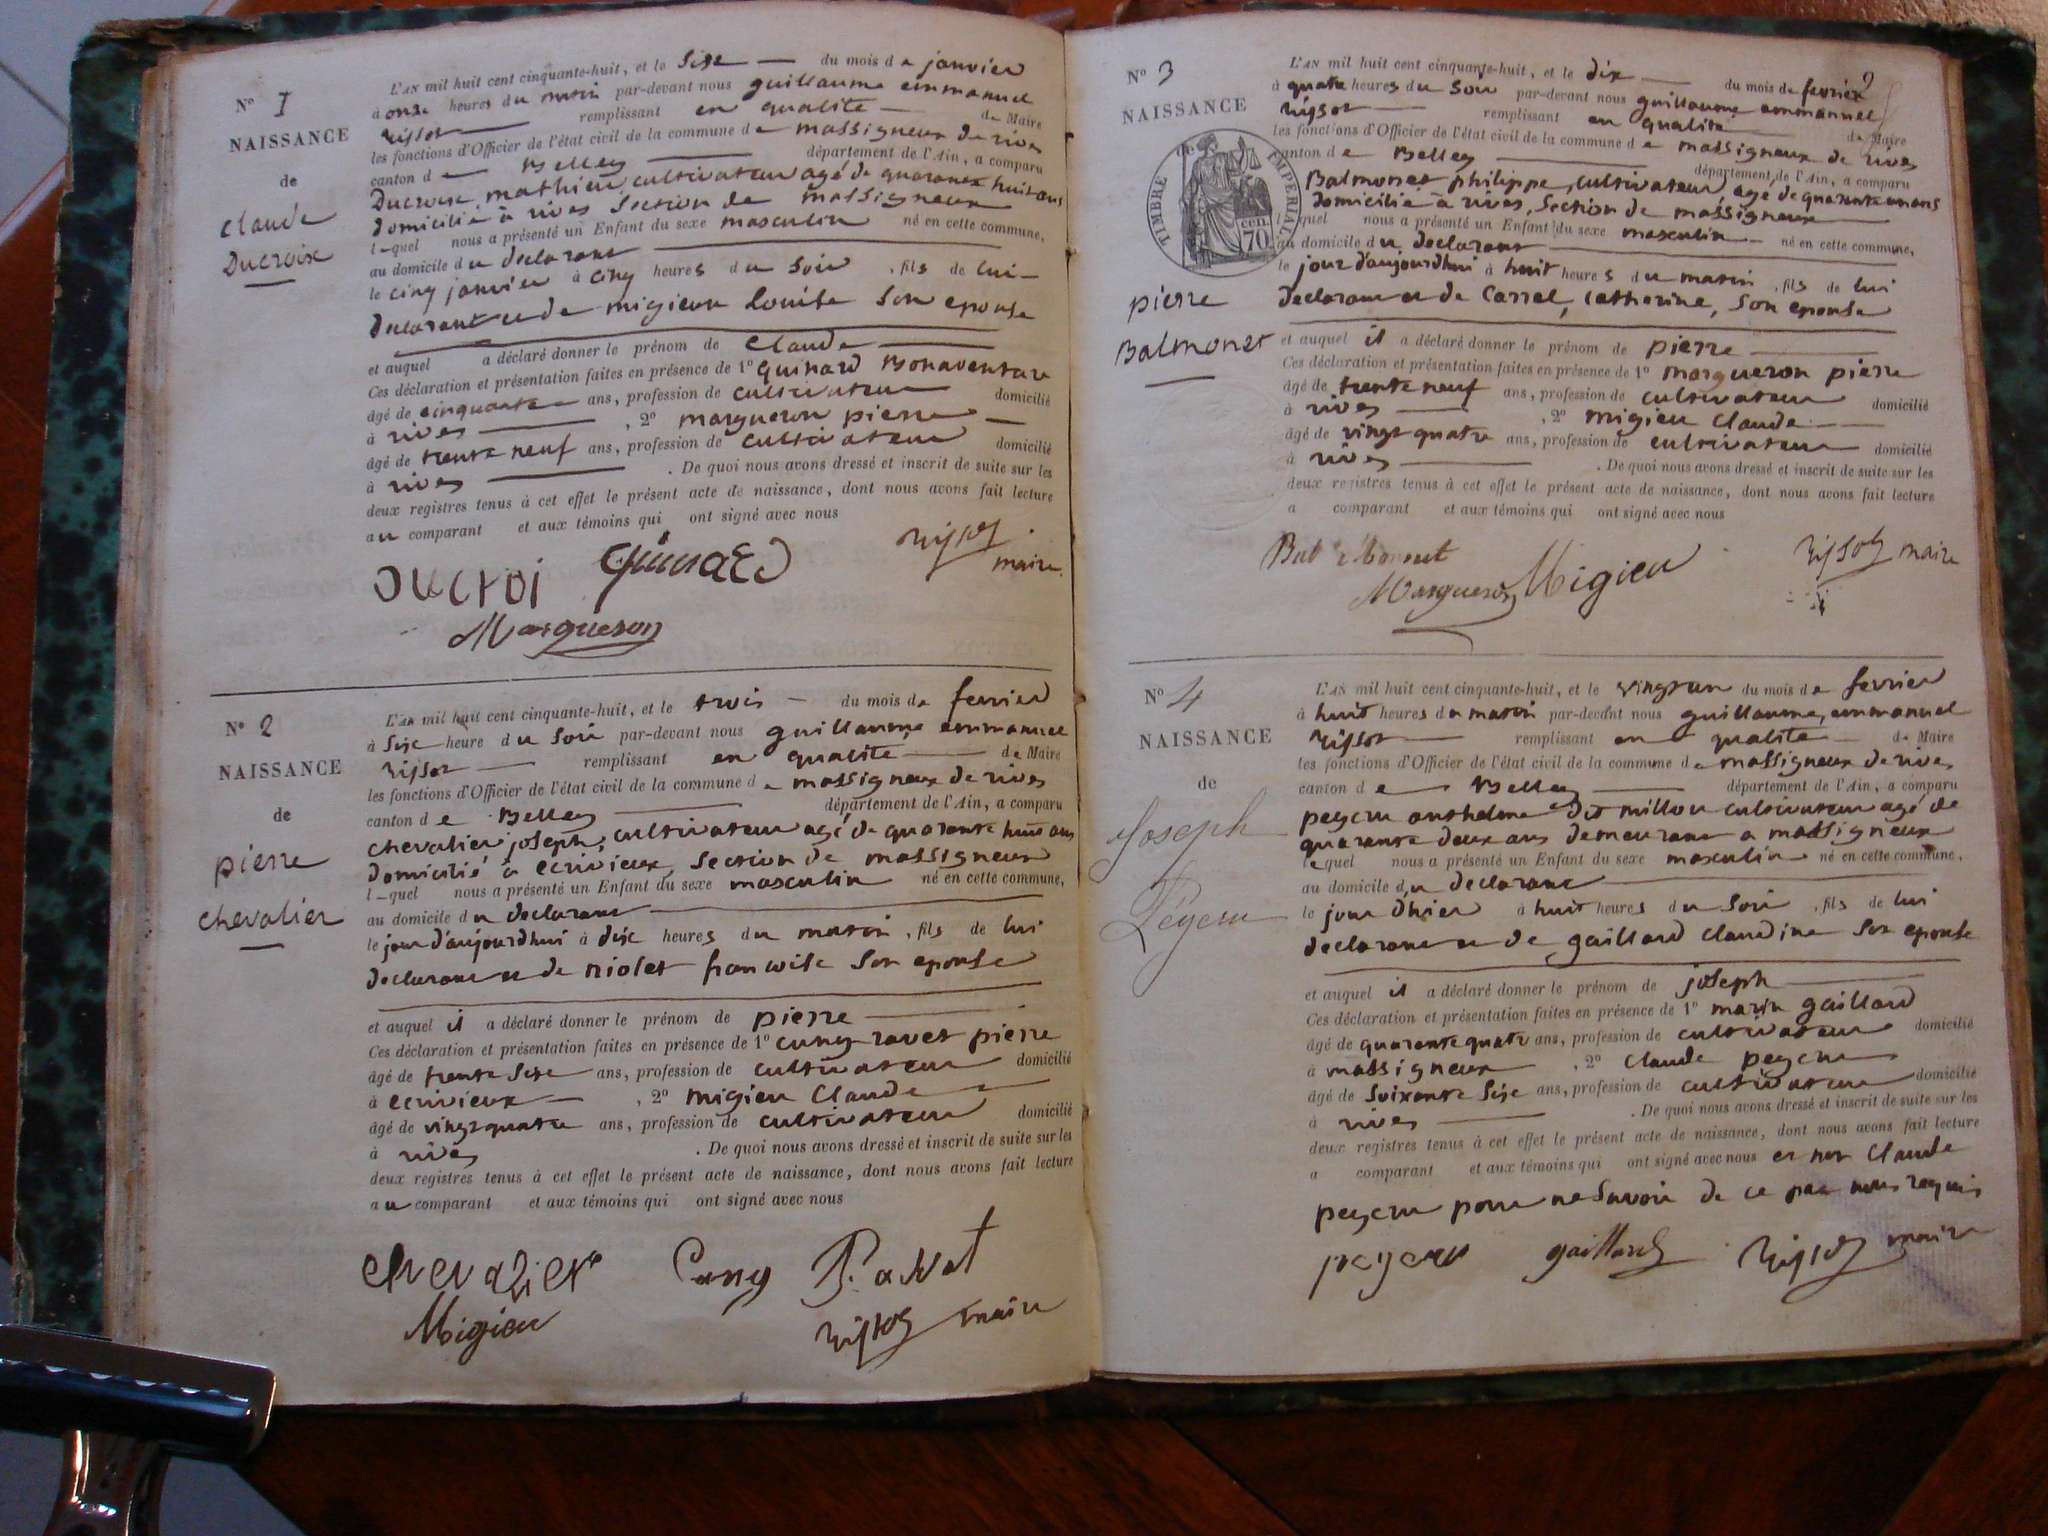 N° 1
NAISSANCE
de
Claude
Ducroix
L'AN mil huit cent cinquante-huit, et le Six du mois de janvier
à onze heures du matin par-devant nous guillaume emmanuel
remplissant en qualité de Maire
les fonctions d'Officier de l'état civil de la commune de massigneux de rives
canton d Belley département de l'Ain, a comparu
Ducroix mathieu, cultivateur agé de quarante huit ans
domicilié à rives Section de massigneux
l quel nous a présenté un Enfant du sexe masculin né en cette commune,
au domicile du declarant
le cinq janvier à cinq heures du Soir , fils de lui
declarant et de migieux louise Son epouse
et auquel a déclaré donner le prénom de Claude
Ces déclaration et présentation faites en présence de 1° quinard Bonaventure
âgé de cinquante ans, profession de cultivateur domicilié
à rives , 2° margueron pierre
âgé de trente neuf ans, profession de cultivateur domicilié
à rives . De quoi nous avons dressé et inscrit de suite sur les
deux registres tenus à cet effet le présent acte de naissance, dont nous avons fait lecture
au comparant et aux témoins qui ont signé avec nous
Ducroi
maire
Margueron
N° 2
NAISSANCE
de
pierre
chevalier
L'AN mil huit cent cinquante-huit, et le trois du mois de fevrier
à Six heure du Soir par-devant nous guillaume emmanuel
remplissant en qualité de Maire
les fonctions d'Officier de l'état civil de la commune de massigneux de rives
canton de Belley département de l'Ain, a comparu
chevalier joseph, cultivateur agé de quarante huit ans
domicilié à ecrivieux, Section de massigneux
l quel nous a présenté un Enfant du sexe masculin né en cette commune,
au domicile du declarant
le jour d'aujourdhui à dix heures du matin , fils de lui
declarant et de riolet francoise Son epouse
et auquel il a déclaré donner le prénom de pierre
Ces déclaration et présentation faites en présence de 1° cuny ravet pierre
âgé de trente Six ans, profession de cultivateur domicilié
à ecrivieux , 2° migieu Claude
âgé de vingt quatre ans, profession de cultivateur domicilié
à rives . De quoi nous avons dressé et inscrit de suite sur les
deux registres tenus à cet effet le présent acte de naissance, dont nous avons fait lecture
au comparant et aux témoins qui ont signé avec nous
chevalier Cuny
Migieu maire
N° 3
NAISSANCE
TIMBRE IMPERIAL
70 CEN.
pierre
Balmonet
L'AN mil huit cent cinquante-huit, et le dix du mois de fevrier
à quatre heures du Soir par-devant nous guillaume emmanuel
remplissant en qualité de Maire
les fonctions d'Officier de l'état civil de la commune de massigneux de rives
canton de Belley département de l'Ain, a comparu
Balmonet philippe, cultivateur, agé de quarante un ans
domicilié à rives, Section de massigneux
l quel nous a présenté un Enfant du sexe masculin né en cette commune,
au domicile du declarant
le jour d'aujourdhui à huit heures du matin , fils de lui
declarant et de Carrel, Catherine, Son epouse
et auquel il a déclaré donner le prénom de pierre
Ces déclaration et présentation faites en présence de 1° margueron pierre
âgé de trente neuf ans, profession de cultivateur domicilié
à rives , 2° migieu Claude
âgé de vingt quatre ans, profession de cultivateur domicilié
à rives . De quoi nous avons dressé et inscrit de suite sur les
deux registres tenus à cet effet le présent acte de naissance, dont nous avons fait lecture
a comparant et aux témoins qui ont signé avec nous
maire
Margueron Migieu
N° 4
NAISSANCE
de
Joseph
L'AN mil huit cent cinquante-huit, et le vingt un du mois de fevrier
à huit heures du matin par-devant nous guillaume, emmanuel
remplissant en qualité de Maire
les fonctions d'Officier de l'état civil de la commune de massigneux de rives
canton de Belley département de l'Ain, a comparu
anthelme dit millou cultivateur agé de
quarante deux ans demeurant a massigneux
lequel nous a présenté un Enfant du sexe masculin né en cette commune,
au domicile du declarant
le jour dhier à huit heures du Soir , fils de lui
declarant et de gaillard claudine Son epouse
et auquel il a déclaré donner le prénom de joseph
Ces déclaration et présentation faites en présence de 1° marin gaillard
âgé de quarante quatre ans, profession de cultivateur domicilié
à massigneux , 2° Claude
âgé de Soixante Six ans, profession de cultivateur domicilié
à rives . De quoi nous avons dressé et inscrit de suite sur les
deux registres tenus à cet effet le présent acte de naissance, dont nous avons fait lecture
a comparant et aux témoins qui ont signé avec nous et non Claude
pour ne Savoir de ce par nous requis
gaillard maire